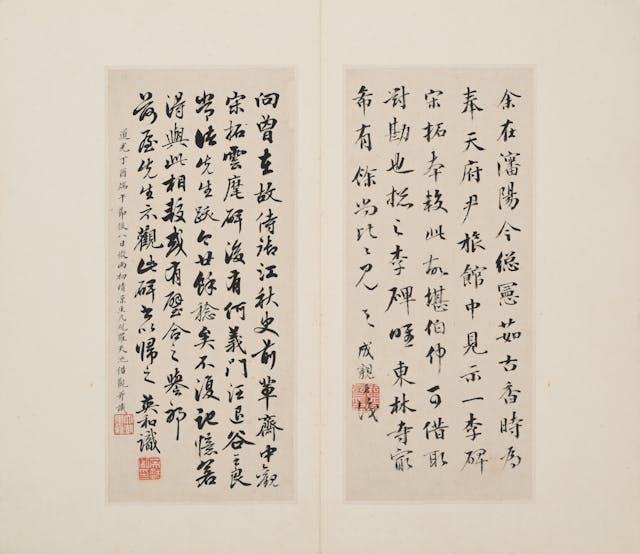 余在瀋陽今総憲茹古香時為
奉天府尹旅館中見示一李碑
宋拓本較此故堪伯仲可借取
對勘也捴之李碑唯東林寺最
希有餘尚比之見之
成親王識
向曾在故侍御江秋史前輩齋中觀
宋拓雲麾碑後有何義門汪退谷王良
常諸先生跋今廿餘稔矣不復記憶若
得與此相較或有璧合之譽耶
先生示觀此碑書以歸之 英和識
道光丁酉端午節後八日微雨初晴
借觀并識